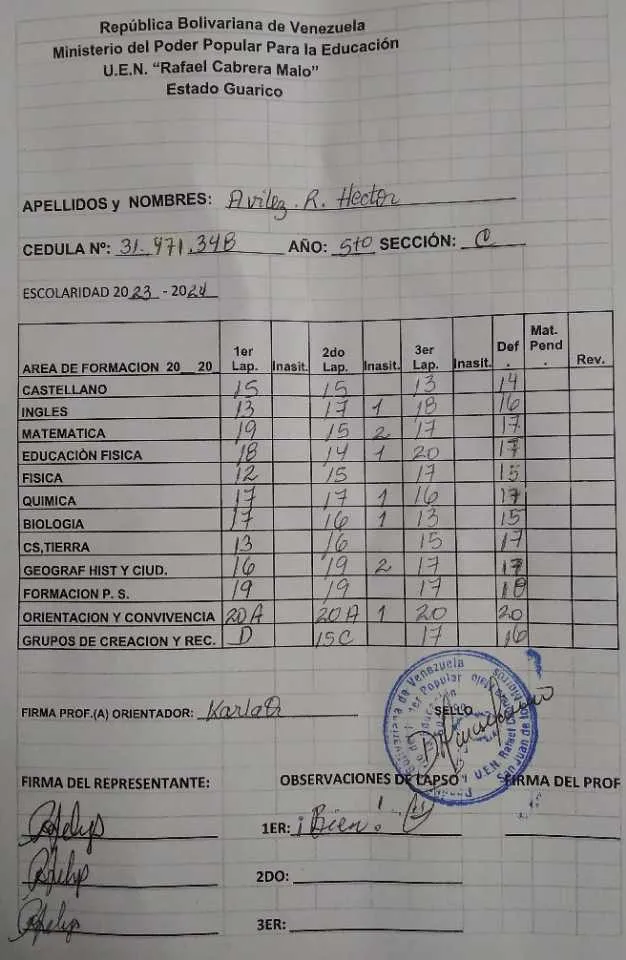 República Bolivariana de Venezuela
Ministerio del Poder Popular Para la Educación
U.E.N. “Rafael Cabrera Malo”
Estado Guarico
APELLIDOS y NOMBRES: Avilez. R. Hector
CEDULA Nº: 31.971.348 AÑO: 5to SECCIÓN: C
ESCOLARIDAD 2023 - 2024
AREA DE FORMACION 20__20 1er Lap. Inasit. 2do Lap. Inasit. 3er Lap. Inasit. Def. Mat. Pend. Rev.
CASTELLANO 15 15 13 14
INGLES 13 17 1 18 16
MATEMATICA 19 15 2 17 17
EDUCACIÒN FISICA 18 14 1 20 17
FISICA 12 15 17 15
QUIMICA 17 17 1 16 17
BIOLOGIA 17 16 1 13 15
CS,TIERRA 13 16 15 17
GEOGRAF HIST Y CIUD. 16 19 2 17 17
FORMACION P. S. 19 19 17 18
ORIENTACION Y CONVIVENCIA 20A 20A 1 20 20
GRUPOS DE CREACION Y REC. D 15C 17 16
FIRMA PROF.(A) ORIENTADOR: Karla
SELLO
FIRMA DEL REPRESENTANTE: OBSERVACIONES DE LAPSO FIRMA DEL PROF
1ER: ¡Bien!
2DO:
3ER: